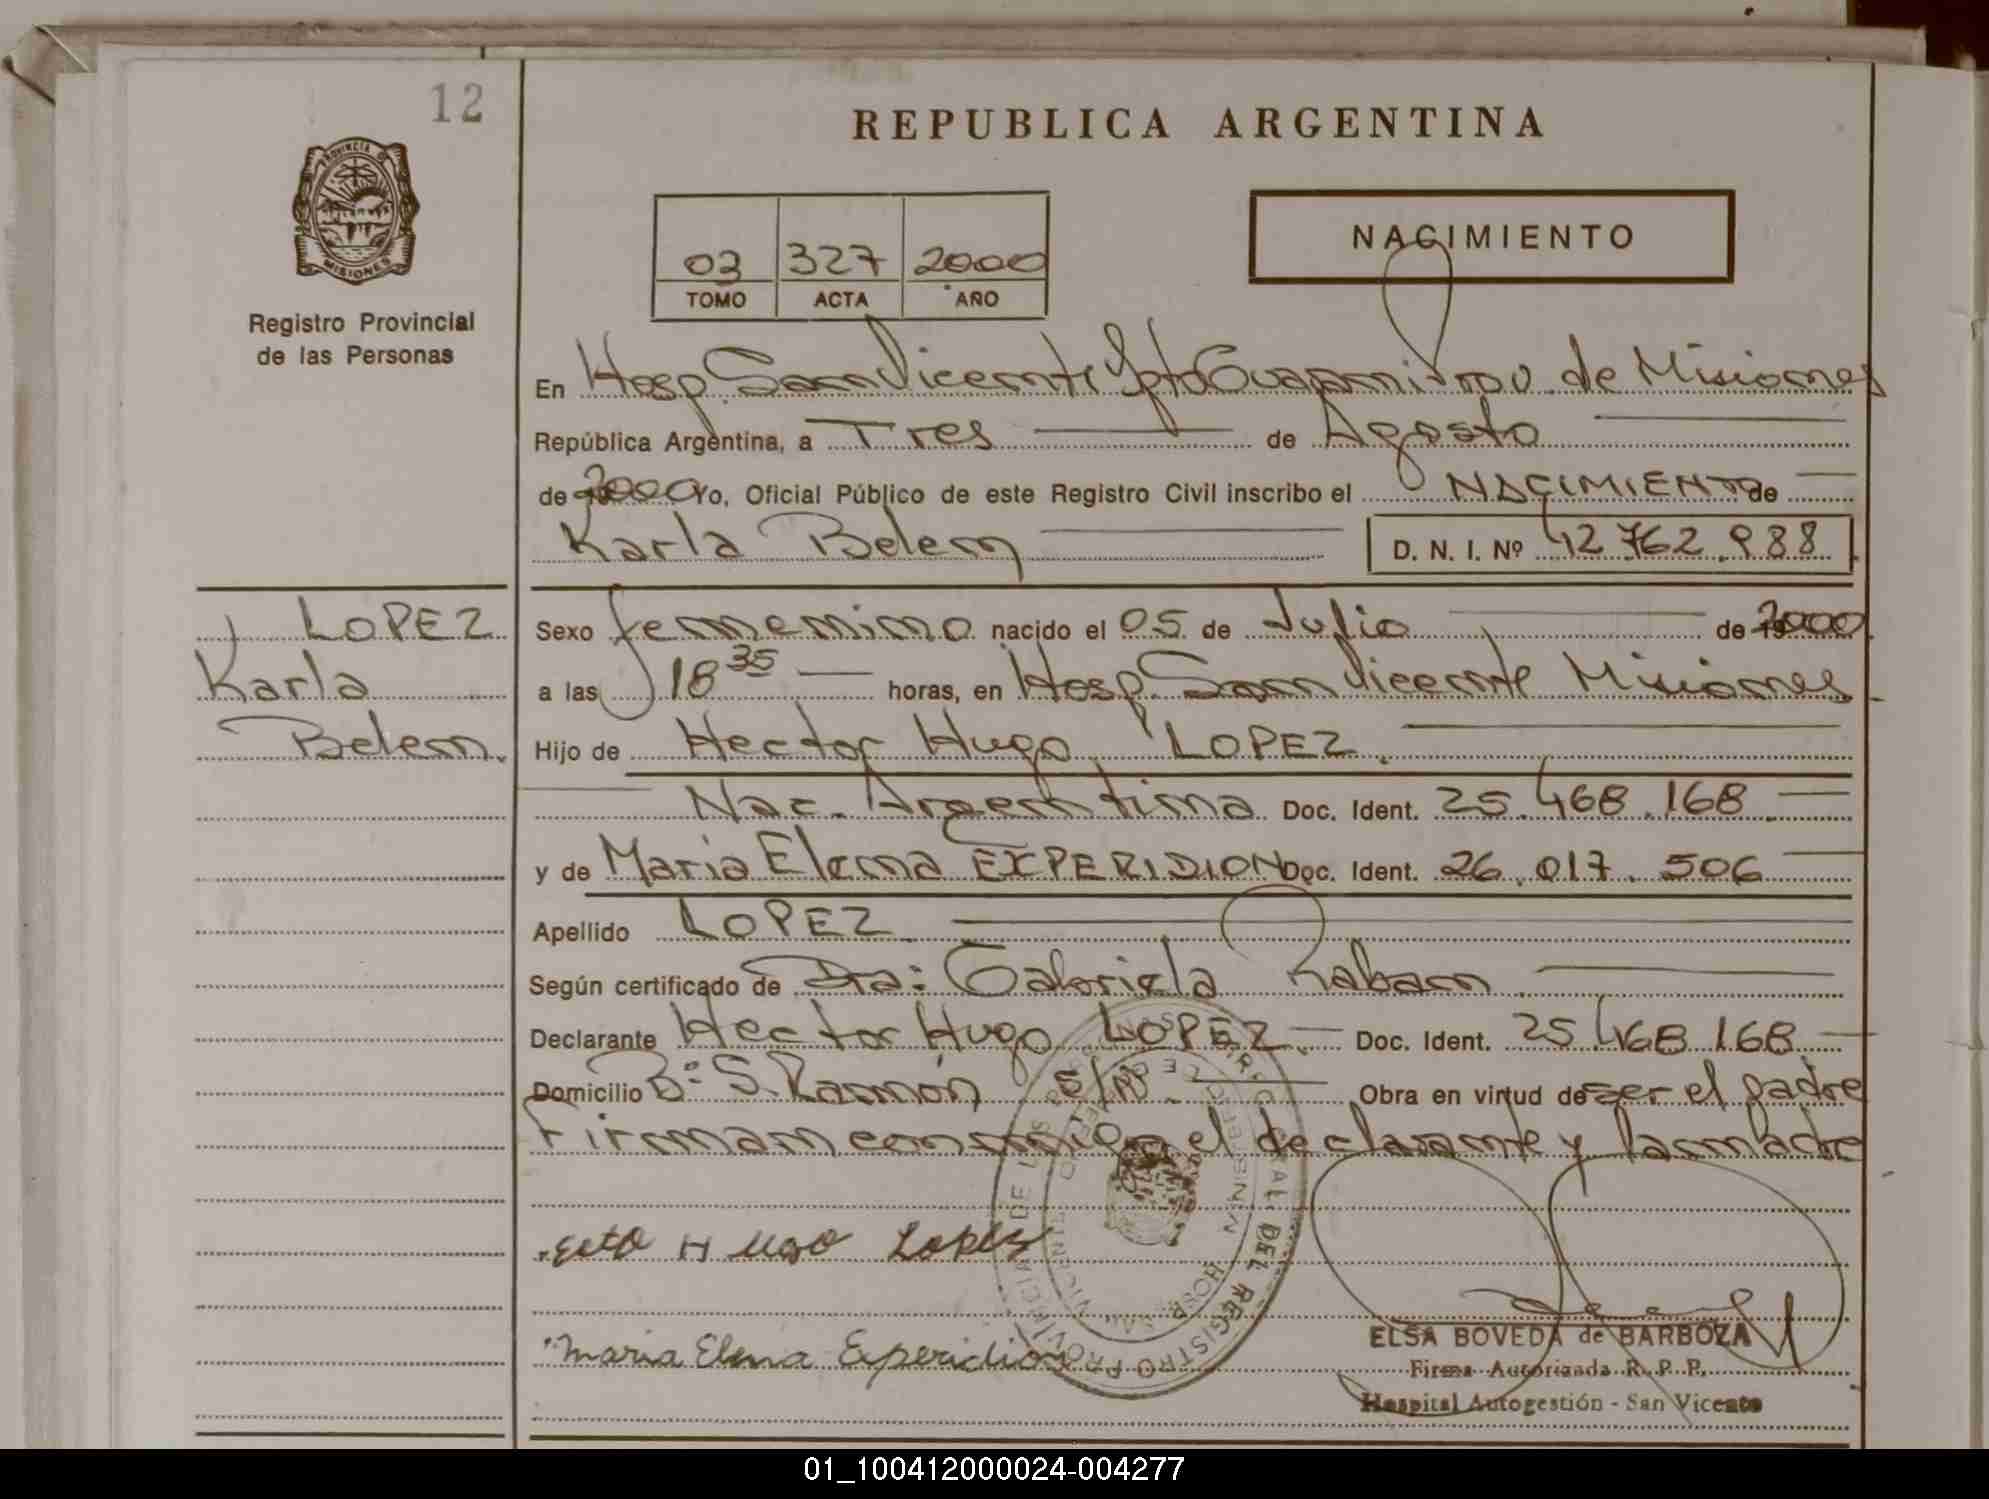 12
REPUBLICA ARGENTINA
PROVINCIA DE
MISIONES
Registro Provincial
de las Personas
NACIMIENTO
03 327 2000
TOMO ACTA AÑO
En Hosp. San Vicente Dpto Guarani Prov. de Misiones
República Argentina, a Tres de Agosto
de 2000 Yo, Oficial Público de este Registro Civil inscribo el NACIMIENTO de
Karla Belem D. N. I. Nº 42 762 988
LOPEZ
Karla
Belem.
Sexo femenino nacido el 05 de Julio de 2000
a las 18 35 horas, en Hosp. San Vicente Misiones
Hijo de Hector Hugo LOPEZ.
Nac. Argentina Doc. Ident. 25.468.168
y de Maria Elena EXPERIDION Doc. Ident. 26.017.506
Apellido LOPEZ
Según certificado de Dra: Gabriela Raban
Declarante Hector Hugo LOPEZ. Doc. Ident. 25 468 168
Domicilio Bº S. Ramón S/Nº. Obra en virtud de ser el padre
Firman conmigo el declarante y la madre
Hugo Lopez
Maria Elena Experidion
ELSA BOVEDA de BARBOZA
Firma Autorizada R. P. P.
Hospital Autogestión - San Vicente
01_100412000024-004277